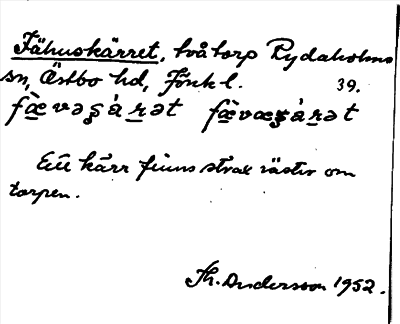 Fähuskärret, två torp Rydaholms
sn, Östbo hd, Jönk l. 39.
fæ̀vəʂáɹət fæ̀væʂáɹət
Ett kärr finns strax väster om
torpen.
Th. Andersson 1952.